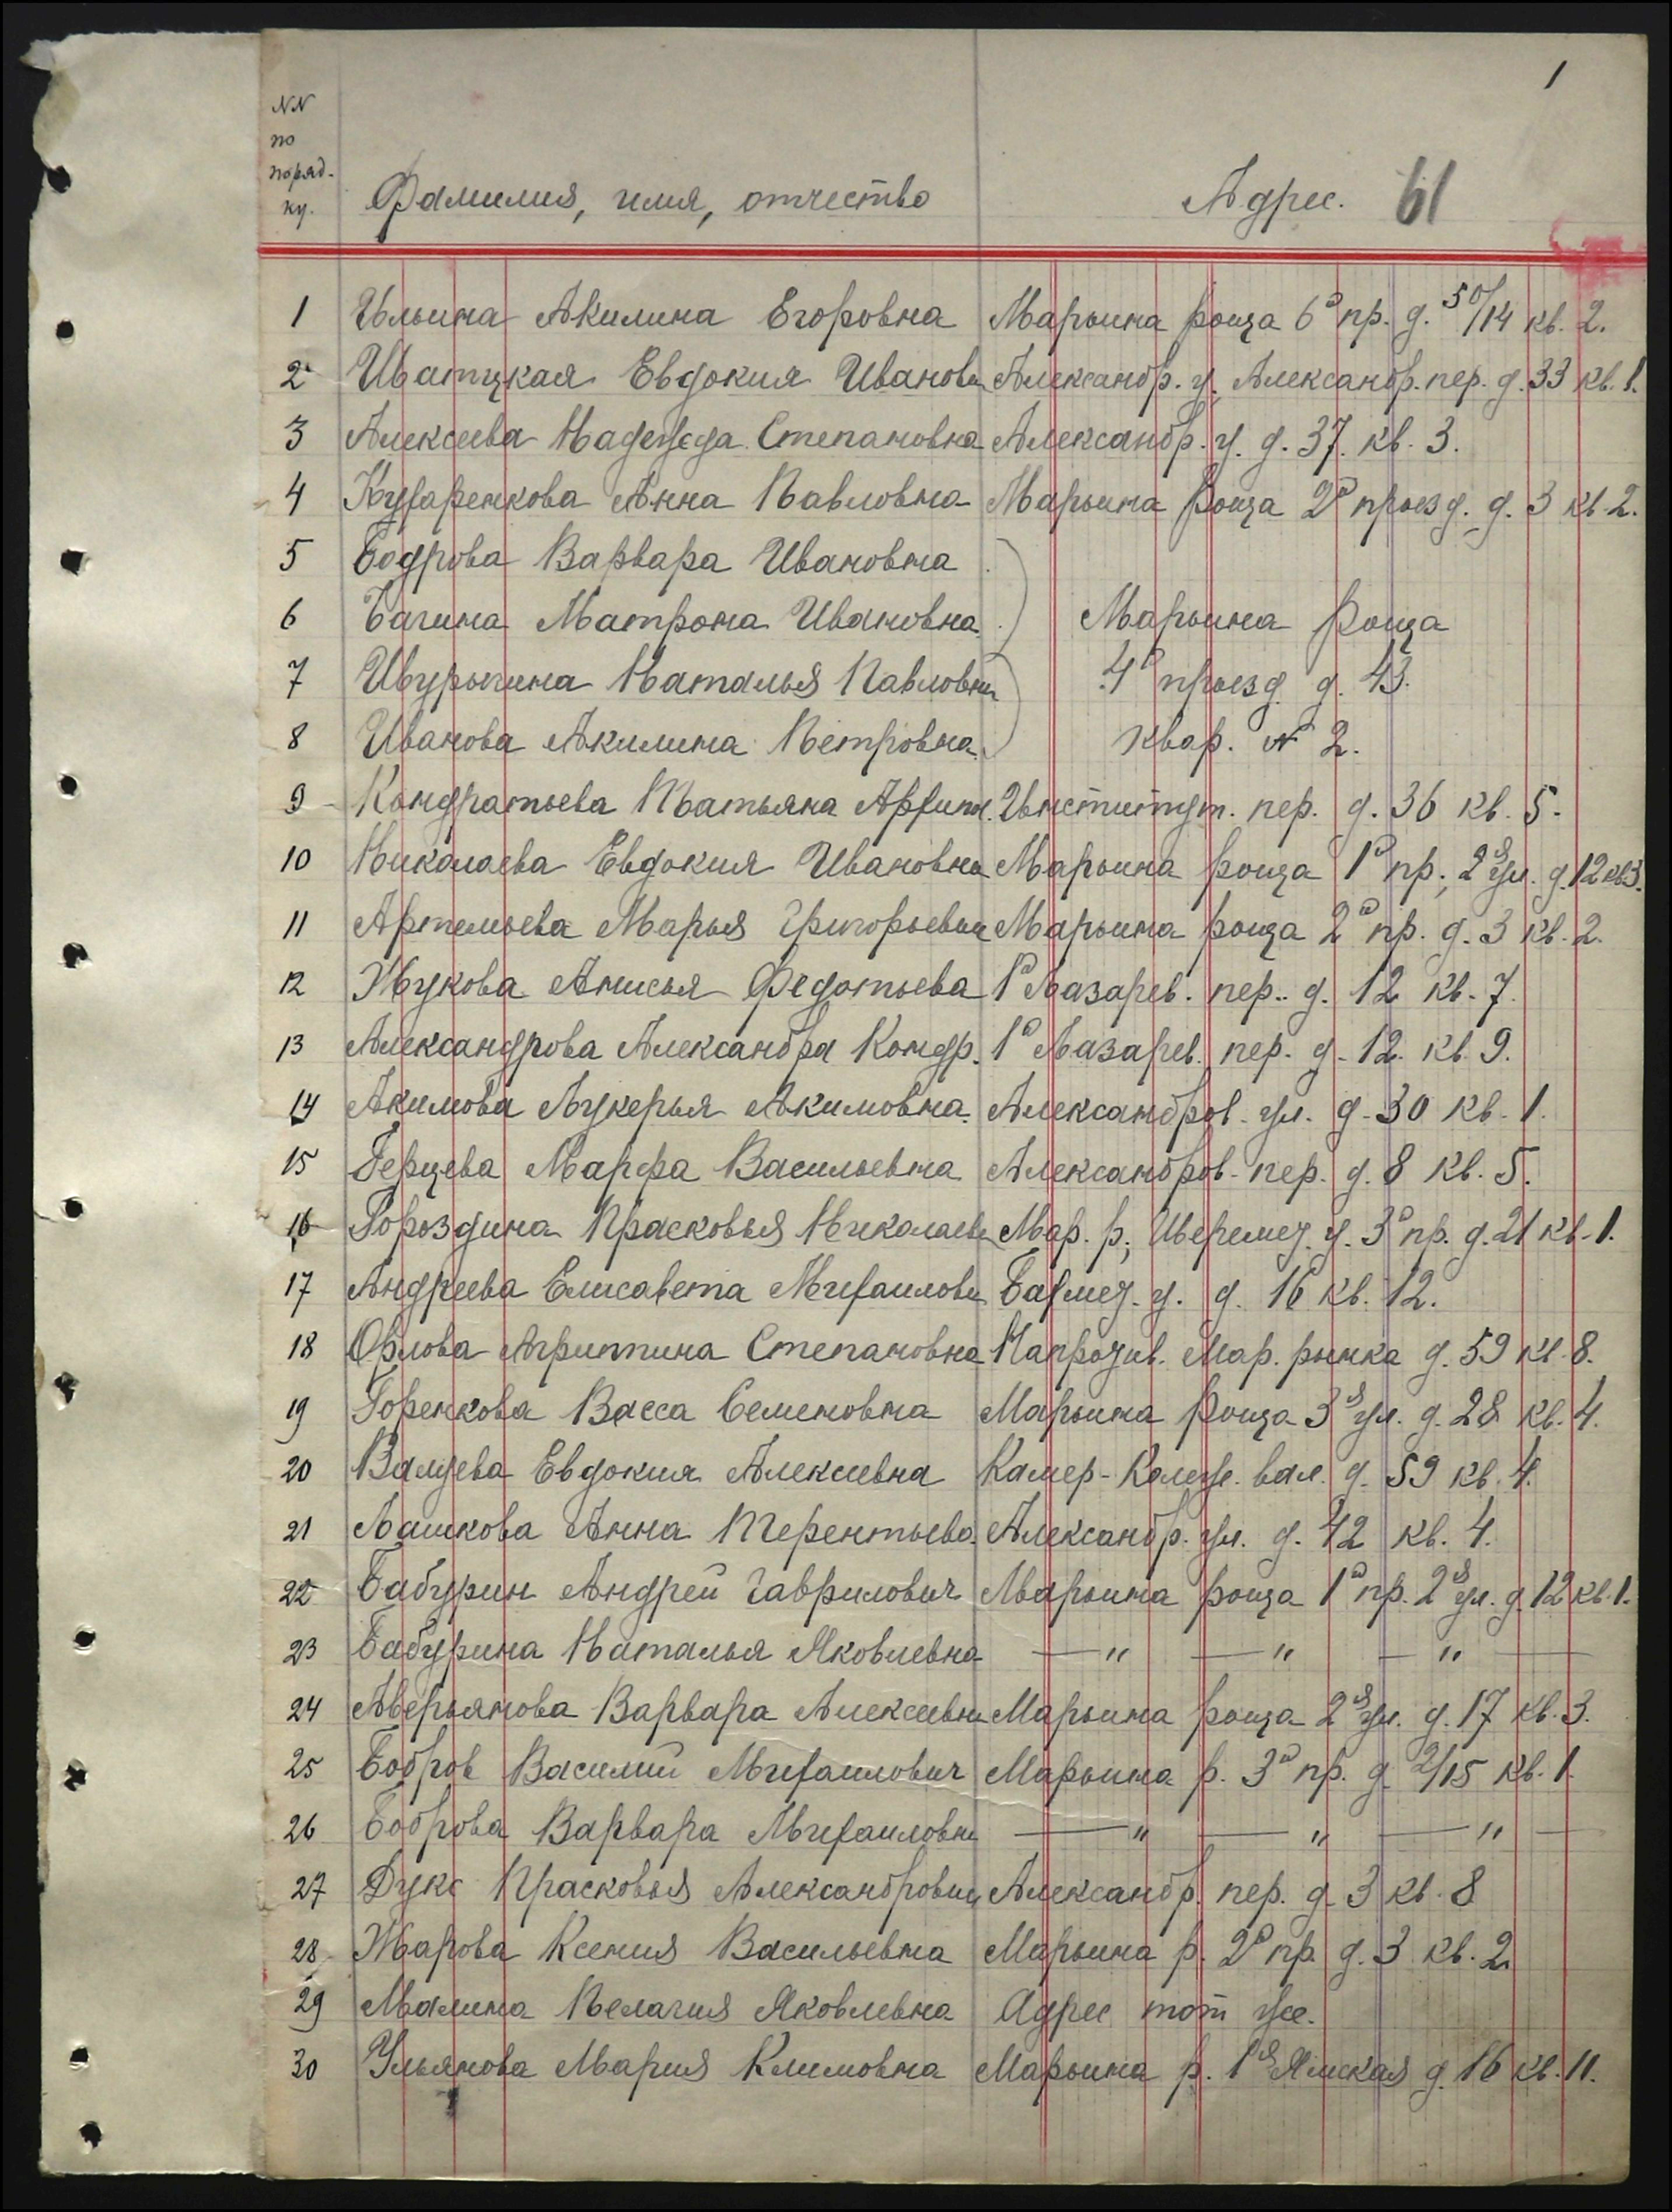 1
NN
по
поряд-
ку.
Фамилия, имя, отчество Адрес. 61
1 Ильина Акилина Егоровна Марьина роща 6й пр. д. 50/14 кв. 2.
2 Евдокия Ивановн Александр. у. Александр. пер. д. 33 кв. 1.
3 Алексеева Надежда Степановна Александр. у. д. 37. кв. 3.
4 Кухаренкова Анна Павловна Марьина роща 2й проезд. д. 3 кв. 2.
5 Бодрова Варвара Ивановна
6 Багина Матрона Ивановна Марьина роща
7 Шурыгина Наталья Павловн 4й проезд д. 43.
8 Иванова Акилина Петровна квар. № 2.
9 Кондратьева Татьяна Институт. пер. д. 36 кв. 5.
10 Николаева Евдокия Ивановна Марьина роща 1й пр., 2я ул. д. 12 кв 3.
11 Артемьева Марья Григорьевн Марьина роща 2й пр. д. 3 кв. 2.
12 Жукова Анисья Федотьева 1й Лазарев. пер. д. 12 кв. 7.
13 Александрова Александра Кондр. 1й Лазарев. пер. д. 12. кв. 9.
14 Акимова Лукерья Акимовна. Александров. ул. д. 30 кв. 1.
15 Герцева Марфа Васильевна Александров. пер. д. 8 кв. 5.
16 Гороздина Прасковья Николаевн Мар. р., Шеремет. у. 3й пр. д. 21 кв. 1.
17 Андреева Елисавета Михаиловн Бахмет. у. д. 16 кв. 12.
18 Орлова Агриппина Степановна Напротив. Мар. рынка д. 59 кв. 8.
19 Горенкова Васса Семеновна Марьина роща 3я ул. д. 28 кв. 4.
20 Евдокия Алексеевна Камер-Колеж. вал. д. 59 кв. 4.
21 Лашкова Анна Терентьева. Александр. ул. д. 42 кв. 4.
22 Бабурин Андрей Гаврилович Марьина роща 1й пр. 2я ул. д. 12 кв. 1.
23 Бабурина Наталья Яковлевна — " — " — " —
24 Аверьянова Варвара Алексеевн Марьина роща 2я ул. д. 17 кв. 3.
25 Бобров Василий Михаилович Марьина р. 3й пр. д. 2/15 кв. 1.
26 Боброва Варвара Михаиловн — " — " — " —
27 Дукс Прасковья Александровн Александр. пер. д. 3 кв. 8
28 Жарова Ксения Васильевна Марьина р. 2й пр. д. 3 кв. 2.
29 Малина Пелагия Яковлевна Адрес тот же.
30 Ульянова Мария Климовна Марьина р. 1я Ямская д. 16 кв. 11.